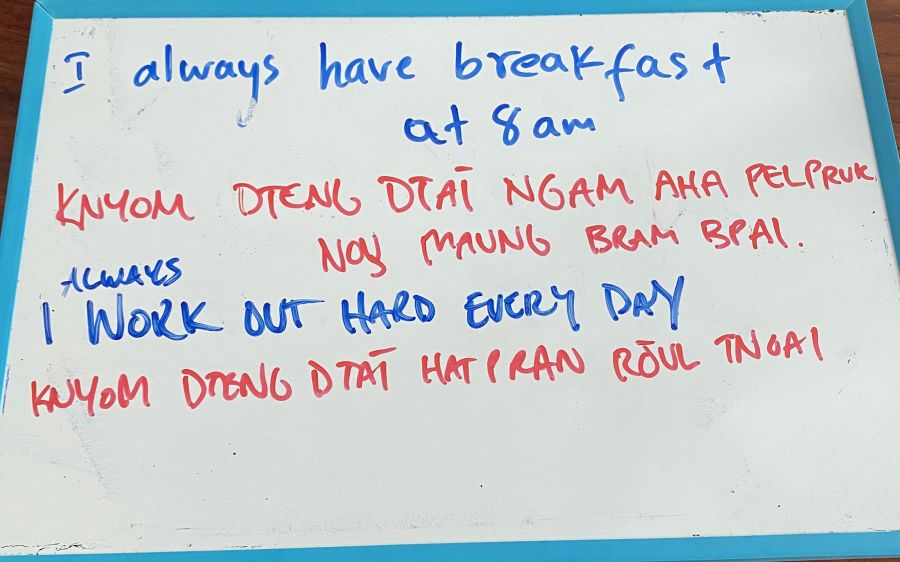 I always have breakfast
at 8 am
KNYOM DTENG DTAĪ NGAM AHA PELPRUK
NOW MAUNG BRAM BPAI.
ALWAYS
I WORK OUT HARD EVERY DAY
KNYOM DTENG DTAĪ HATPRAN RŌUL TNGAI